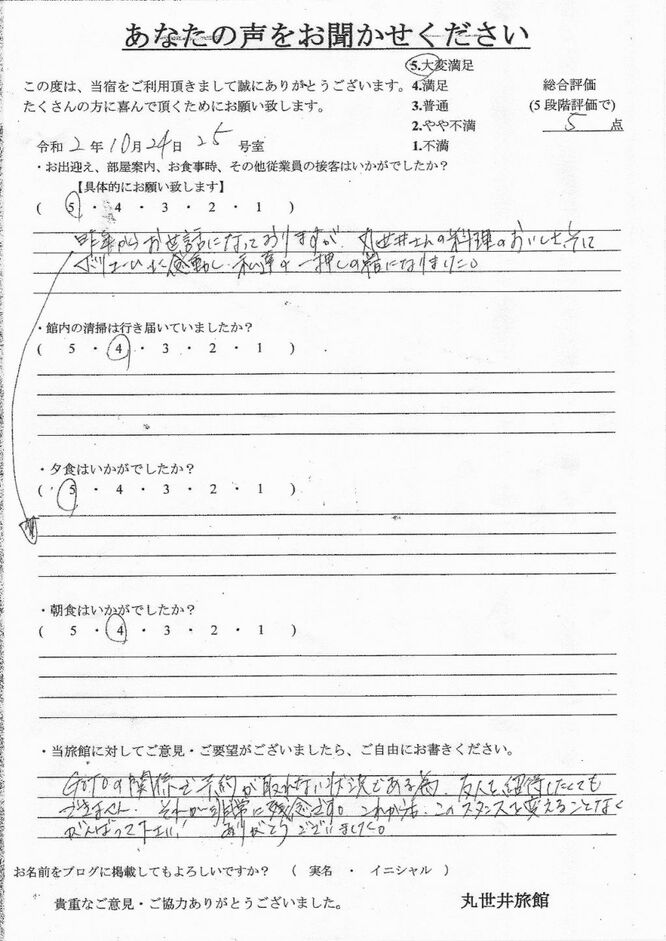 あなたの声をお聞かせください
この度は、当宿をご利用頂きまして誠にありがとうございます。
たくさんの方に喜んで頂くためにお願い致します。
5.大変満足
4.満足
3.普通
2.やや不満
1.不満
総合評価
(5段階評価で)
5 点
令和 2 年 10 月 24 日 25 号室
・お出迎え、部屋案内、お食事時、その他従業員の接客はいかがでしたか?
【具体的にお願い致します】
( 5 ・ 4 ・ 3 ・ 2 ・ 1 )
昨年からお世話になっておりますが、丸世井さんの料理のおいしさ、そに
ボリュームに感動し、私達の一押しの宿になりました。
・館内の清掃は行き届いていましたか?
( 5 ・ 4 ・ 3 ・ 2 ・ 1 )
・夕食はいかがでしたか?
( 5 ・ 4 ・ 3 ・ 2 ・ 1 )
・朝食はいかがでしたか?
( 5 ・ 4 ・ 3 ・ 2 ・ 1 )
・当旅館に対してご意見・ご要望がございましたら、ご自由にお書きください。
GOTOの関係で予約が取れない状況である為、友人を招待したくても
できません。それが非常に残念です。これからも、このスタンスを変えることなく
がんばって下さい! ありがとうございました。
お名前をブログに掲載してもよろしいですか? ( 実名 ・ イニシャル )
貴重なご意見・ご協力ありがとうございました。
丸世井旅館